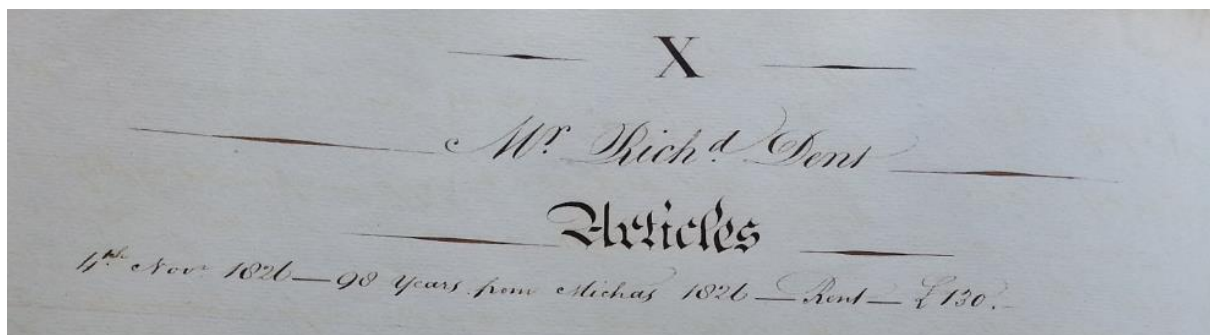 X
Mr. Richd. Dent
Articles
4th. Novr. 1826 — 98 Years from Michas 1826 — Rent — £130.